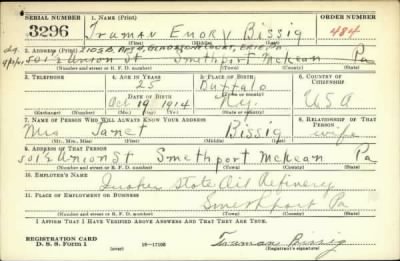 SERIAL NUMBER 1. NAME (Print) ORDER NUMBER
3296 Truman Emory Bissig 484
(First) (Middle) (Last)
2. ADDRESS (Print)
501 E Union St Smethport McKean Pa
(Number and street or R. F. D. number) (Town) (County) (State)
3. TELEPHONE 4. AGE IN YEARS 5. PLACE OF BIRTH 6. COUNTRY OF CITIZENSHIP
25 Buffalo
DATE OF BIRTH
Oct 19 1914 N.y. USA
(Exchange) (Number) (Mo.) (Day) (Yr.) (State or country)
7. NAME OF PERSON WHO WILL ALWAYS KNOW YOUR ADDRESS 8. RELATIONSHIP OF THAT PERSON
Mrs Janet Bissig wife
(Mr., Mrs., Miss) (First) (Middle) (Last)
9. ADDRESS OF THAT PERSON
501 E Union St Smethport McKean Pa
(Number and street or R. F. D. number) (Town) (County) (State)
10. EMPLOYER'S NAME
Quaker State Oil Refinery
11. PLACE OF EMPLOYMENT OR BUSINESS
Smethport Pa
(Number and street or R. F. D. number) (Town) (County) (State)
I AFFIRM THAT I HAVE VERIFIED ABOVE ANSWERS AND THAT THEY ARE TRUE.
REGISTRATION CARD
D. S. S. Form 1 (over) 16—17105 Truman Bissig
(Registrant's signature)